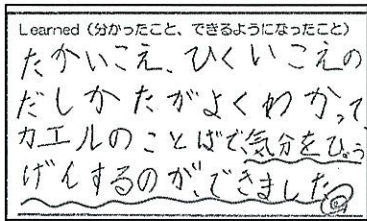 Learned（分かったこと、できるようになったこと）
たかいこえ、ひくいこえの
だしかたがよくわかって
カエルのことばで、気分をひょう
げんするのが、できました